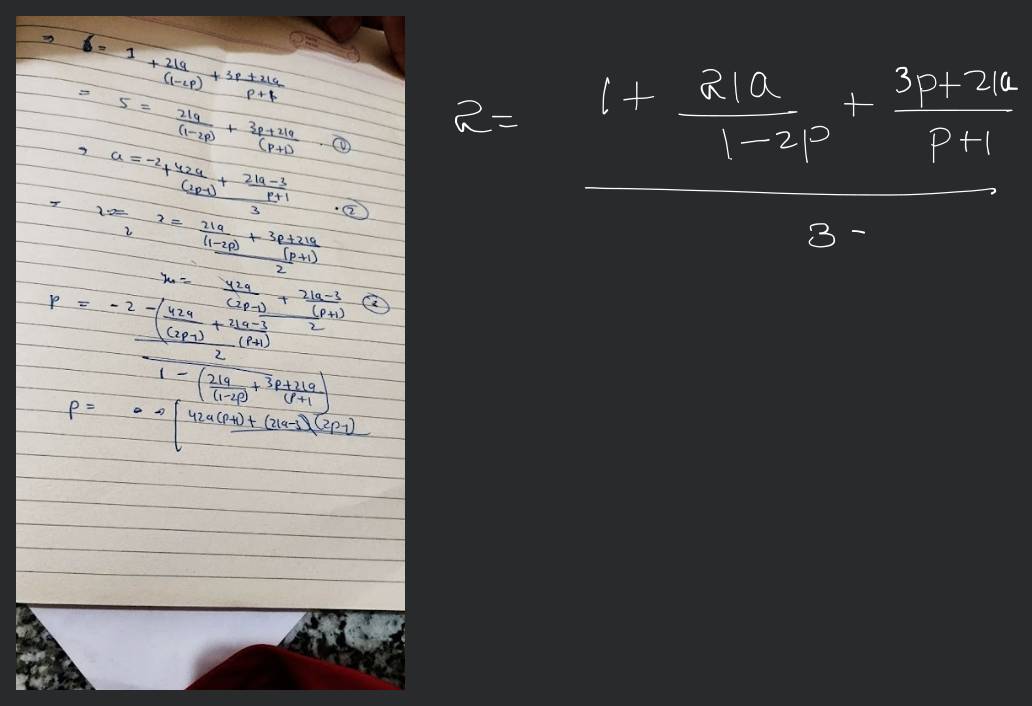 ⇒ 6 = 1 + 21a/(1-2p) + 3p+21a/p+1
= 5 = 21a/(1-2p) + 3p+21a/(p+1) . ①
⇒ a = -2 + 42a/(2p-1) + 21a-3/p+1 / 3 . ②
2 = 21a/(1-2p) + 3p+21a/(p+1) / 2
= 42a/(2p-1) + 21a-3/(p+1) / 2
p = -2 - (42a/(2p-1) + 21a-3/(p+1)) / 2
1 - (21a/(1-2p) + 3p+21a/(p+1)
p = [42a(p+1) + (21a-3)(2p-1)
2 = 1 + 21a/1-2p + 3p+21a/p+1 / 3 -